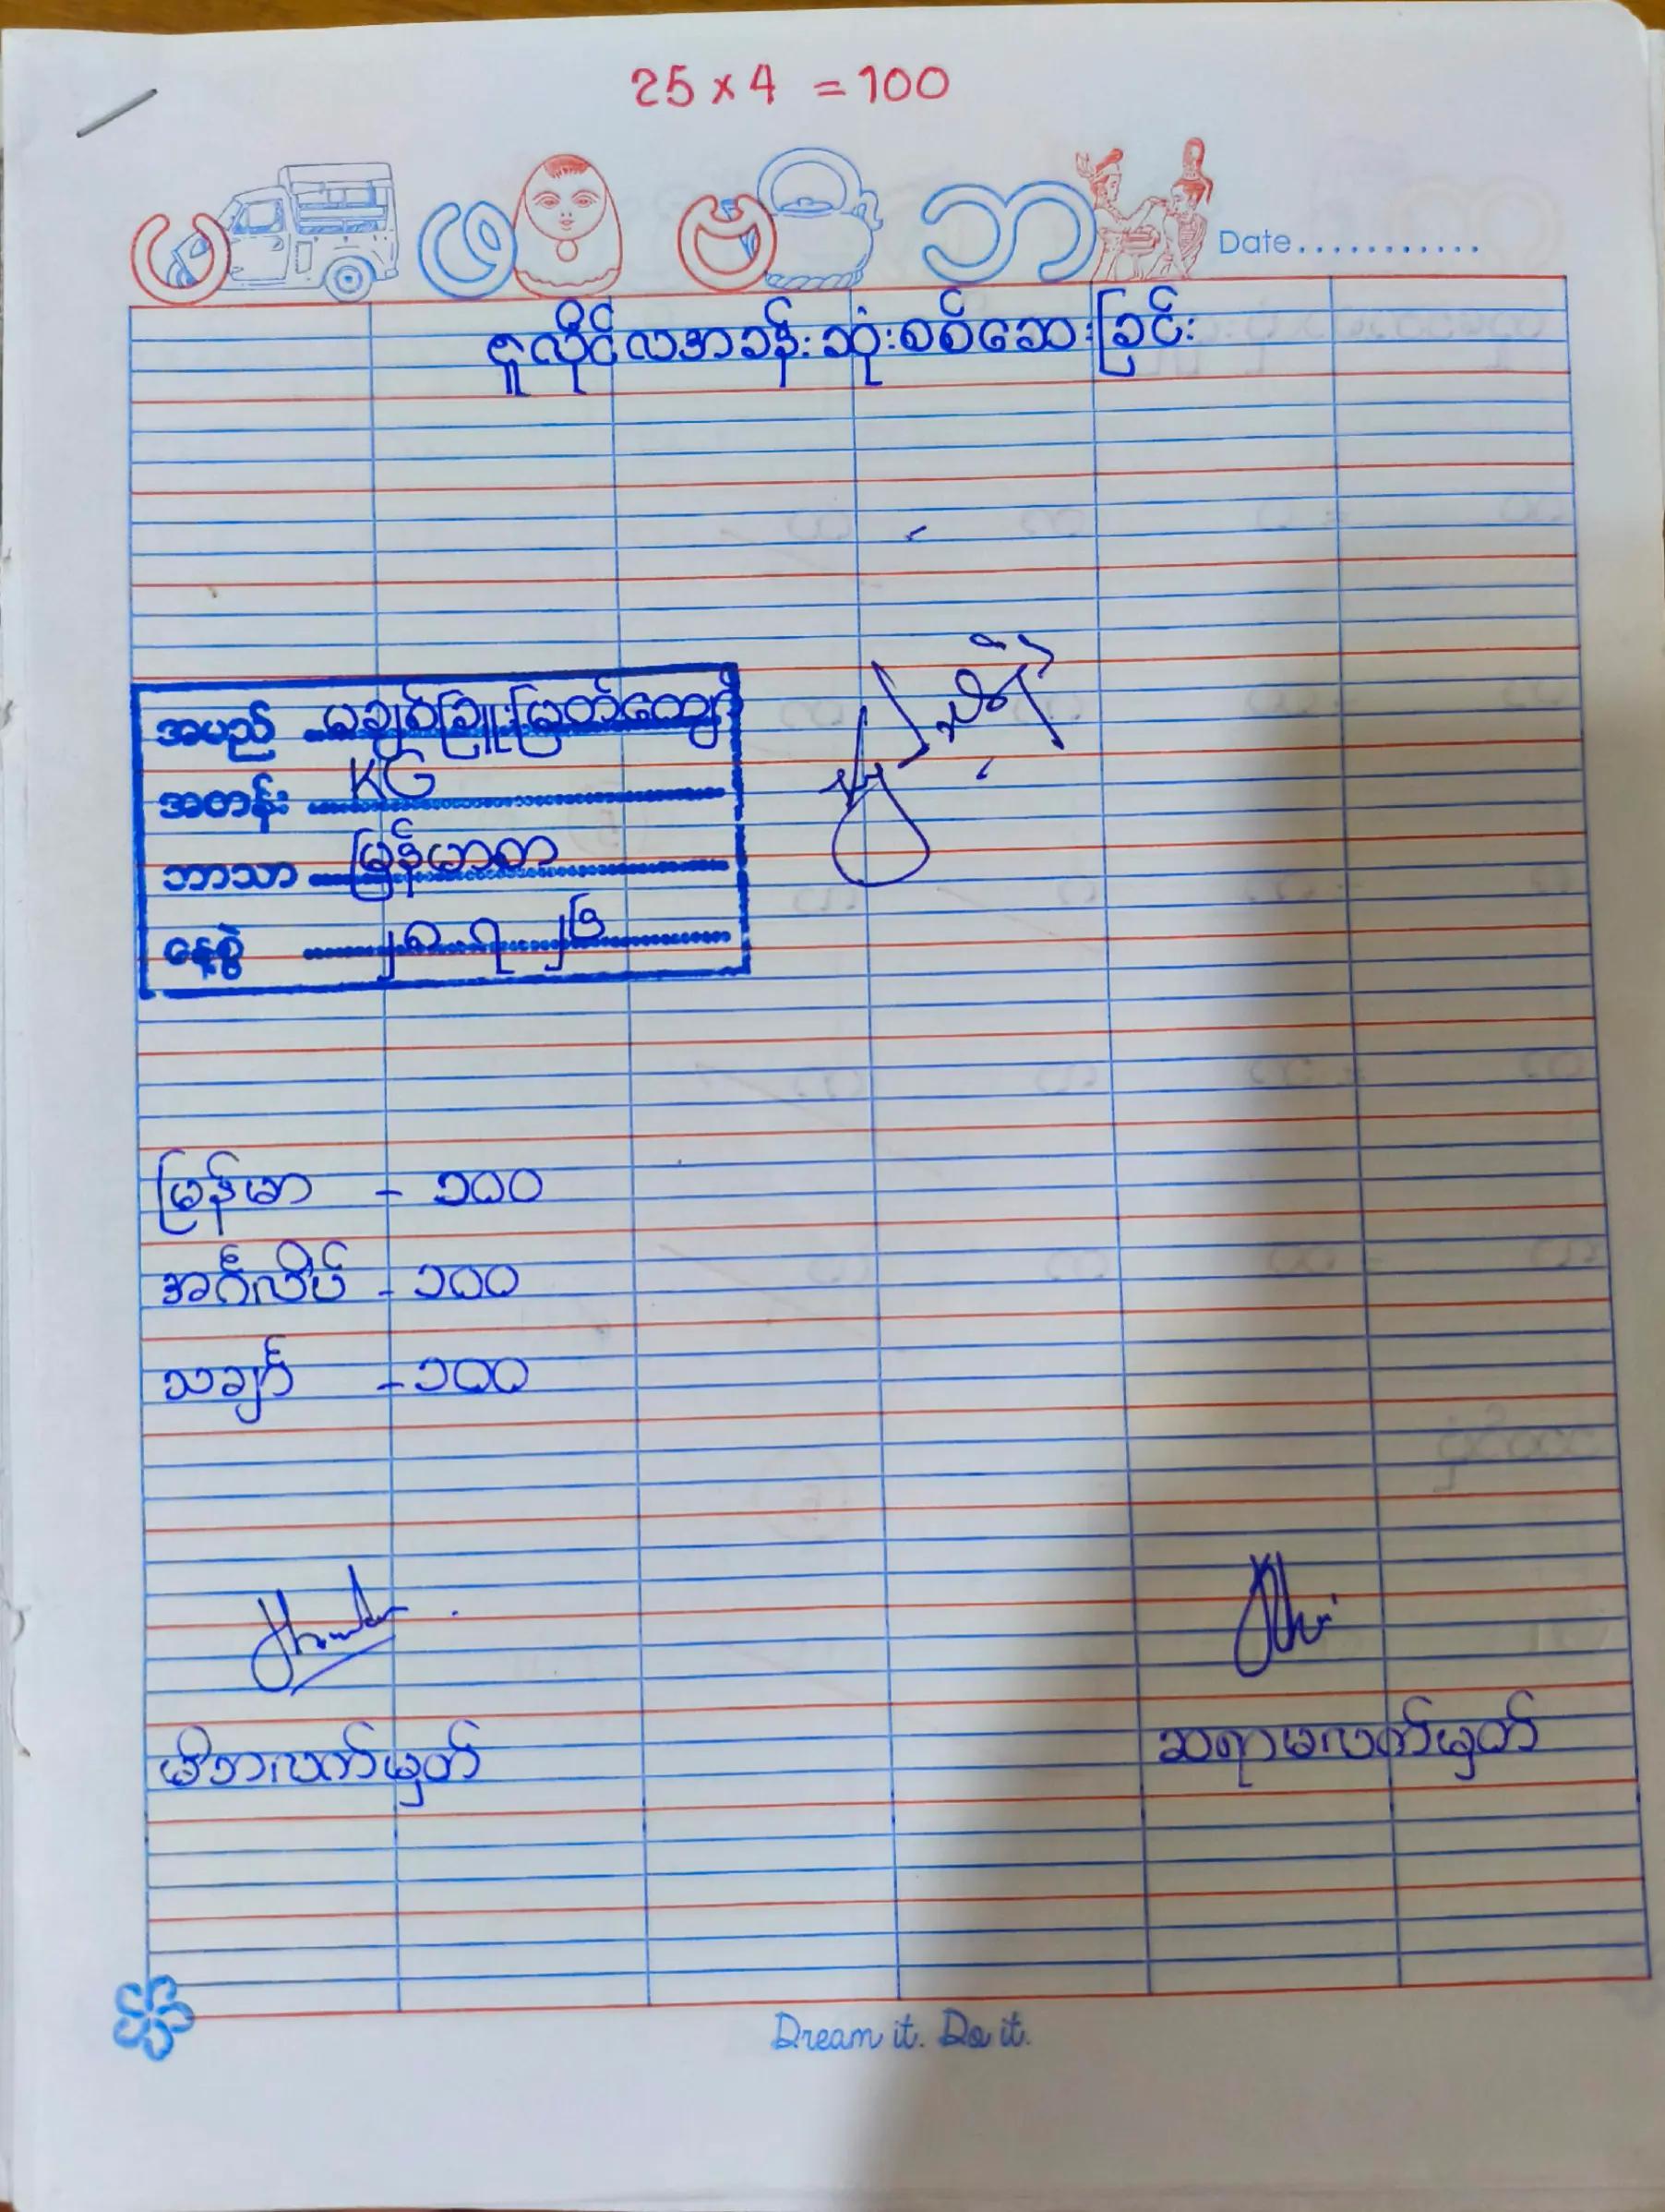 25 × 4 = 100
ပ ဖ ဗ ဘ Date...........
ဇူလိုင်လအခန်းဆုံးစစ်ဆေးခြင်း
အမည် မချစ်ခြူးမြတ်ကျော်
အတန်း KG
ဘာသာ မြန်မာစာ
နေ့စွဲ ၂၈.၇.၂၆
မြန်မာ - ၁၀၀
အင်္ဂလိပ် - ၁၀၀
သင်္ချာ - ၁၀၀
မိဘလက်မှတ် ဆရာမလက်မှတ်
Dream it. Do it.